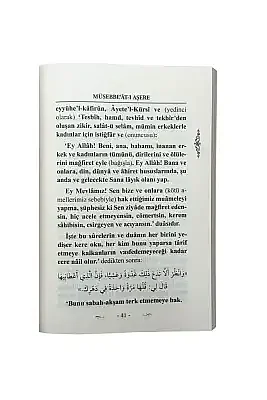 MÜSEBBEÂT-I AŞERE
eyyühe'l-kâfirûn, Âyete'l-Kürsî ve (yedinci
olarak) 'Tesbîh, hamd, tevhîd ve tekbir'den
oluşan zikir, salât-ü selâm, mümin erkeklerle
kadınlar için istiğfar ve (onuncusu):
'Ey Allâh! Beni, ana, babamı, inanan er-
kek ve kadınların tümünü, dirilerini ve ölüle-
rini mağfiret eyle (bağışla). Ey Allâh! Bana ve
onlara, din, dünyâ ve âhiret hususlarında, şu
anda ve gelecekte Sana lâyık olanı yap.
Ey Mevlâmız! Sen bize ve onlara (kötü a-
mellerimiz sebebiyle) hak ettiğimiz muâmeleyi
yapma, şüphesiz ki Sen ziyade mağfiret eden-
sin, hiç acele etmeyensin, cömertsin, kerem
sâhibisin, esirgeyen ve acıyansın.' duâsıdır.
İşte bu sûrelerin ve duânın her birini ye-
dişer kere oku, her kim bunu yaparsa târif
etmeye kalkanların vasfedemeyeceği kadar
ecre nâil olur.' dedikten sonra:
«وَانْظُرْ أَلَّا تَدَعَ ذٰلِكَ غُدْوَةً وَعَشِيَّةً، فَإِنَّ الَّذِي أَعْطَانِيهَا
قَالَ لِي: قُلْهَا مَرَّةً وَاحِدَةً فِي دَهْرِكَ»
'Bunu sabah-akşam terk etmemeye bak.
- 41 -